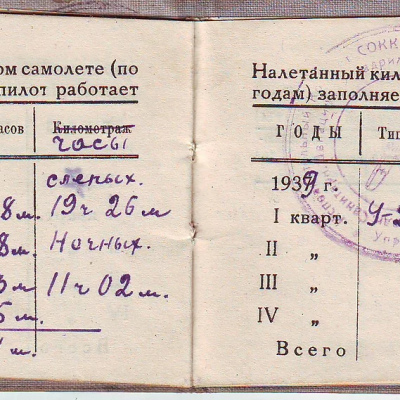 ом самолете (по
пилот работает
асов Километраж
часы
слепых.
8 м. 19 ч 26 м
8 м. Ночных.
3 м 11 ч 02 м.
5 м.
м.
Налетанный кил
годам) заполняе
ГОДЫ Тип
1939 г.
I кварт. У-2
II „
III „
IV „
Всего
СОКК
Упр